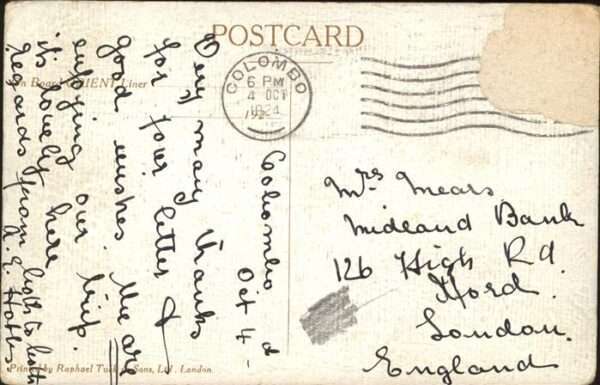 POSTCARD
On Board ORIENT Liner
COLOMBO
6 PM
4 OCT
1924
192
Colombo
Oct 4
Very many thanks
for your letter &
good wishes. We are
enjoying our trip.
it's lovely here
Regards from both to both
A. E.
Mrs Mears
Midland Bank
126 High Rd.
Ilford.
London.
England
Printed by Raphael Tuck & Sons, Ltd. London.